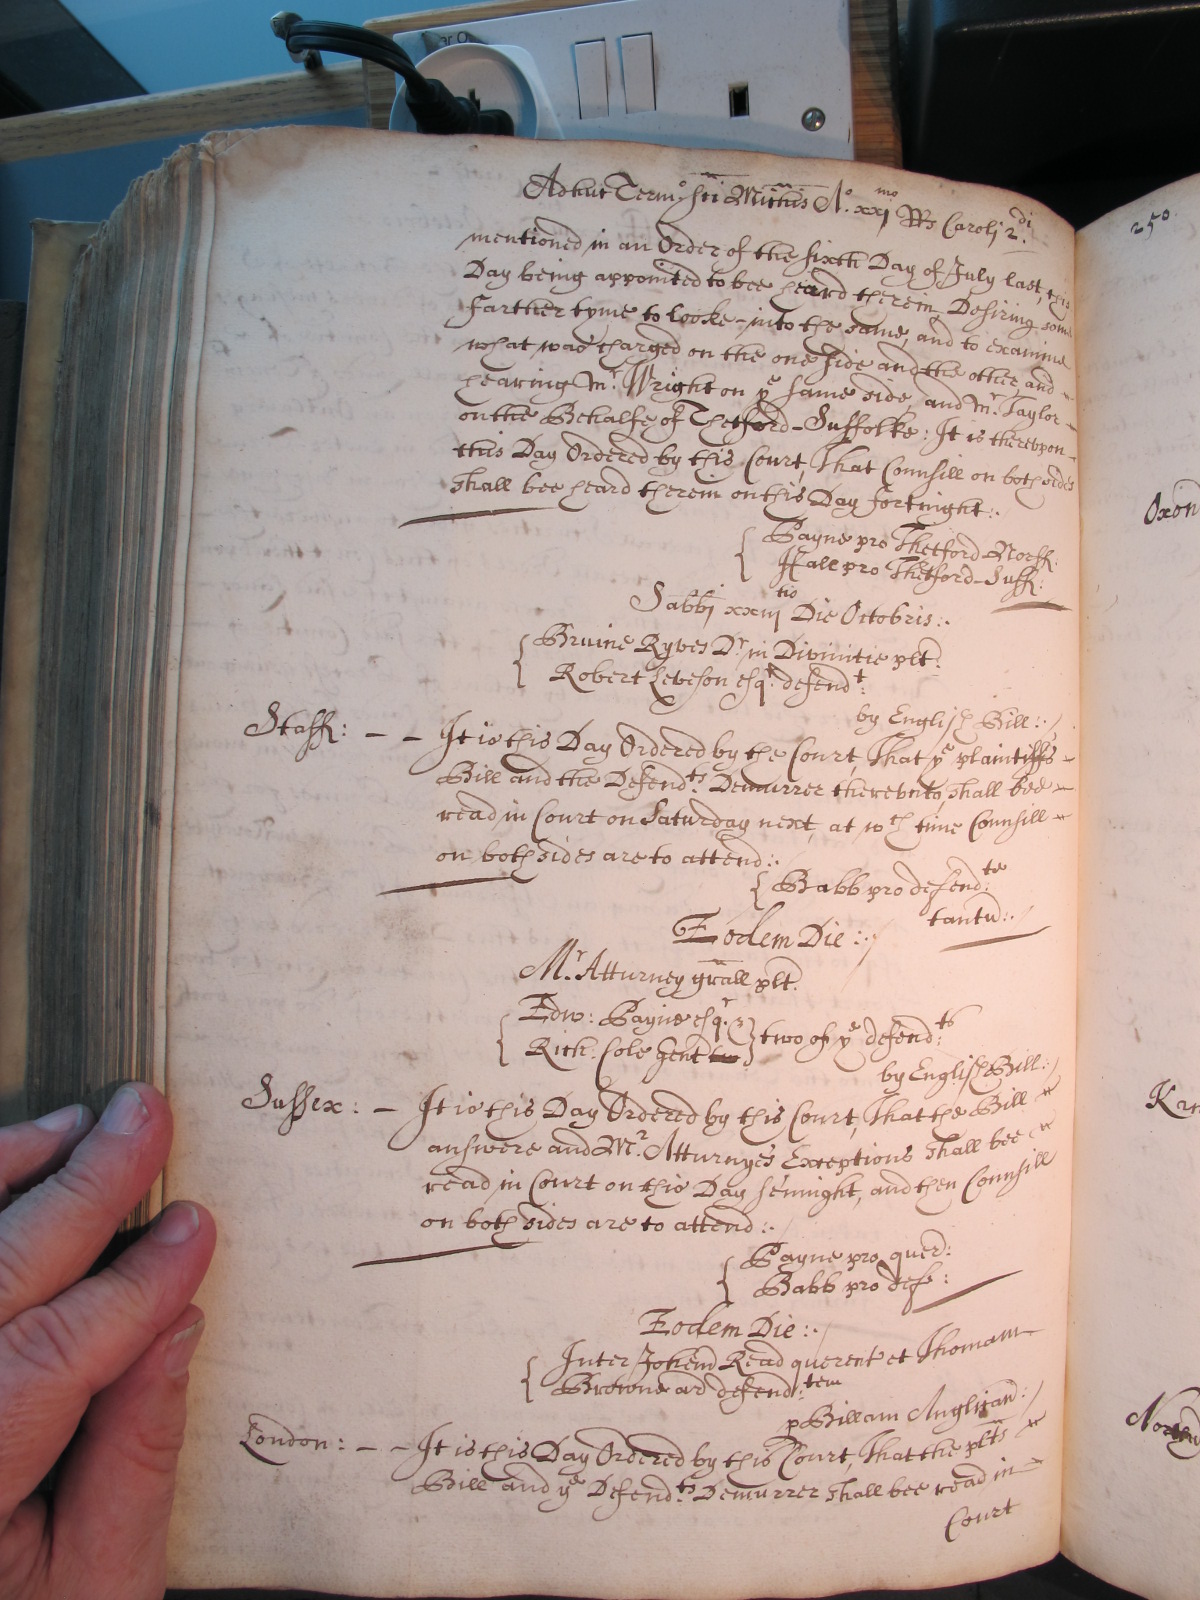 Adhuc Term:o Sci Michis A:o xxj mo Rs Caroli 2:di
mentioned in an Order of the sixth Day of July last, this
Day being appointed to bee heard therein, Desiring some
farther tyme to looke-into the same, and to examine
what was charged on the one side and the other, and
hearing Mr. Wright on ye same side, and Mr. Taylor
on the Behalfe of Thetford-Suffolke: It is therevpon
this Day Ordered by this Court, That Counsill on both sides
shall bee heard therein on this Day fortnight:.
Payne pro Thetford-Norff:
Hall pro Thetford-Suff:
Sabbi xxiij tio Die Octobris:.
Bruine Ryves Dr. in Divinitie plt:
Robert Leveson esqr. defendt:
by English Bill:.
Staff: - - It is this Day Ordered by the Court, That ye plaintiffs
Bill and the Defendts: Demurrer therevnto, shall bee
read in Court on Saturday next, at wch time Counsill
on both sides are to attend:.
Babb pro defend:te
tantu:.
Eodem Die:.
Mr. Atturney grall plt.
Edw: Payne esqr.
Rich: Cole Gent
two of ye defend:ts
by English Bill:.
Sussex: - It is this Day Ordered by this Court, That the Bill
answere and Mr. Atturnyes Exceptions shall bee
read in Court on this Day sennight, and then Counsill
on both sides are to attend:.
Payne pro quer:
Babb pro defs:
Eodem Die:.
Inter Johem Read querent et Thomam
Browne ar defend:tem
p Billam Anglican:
London: - - It is this Day Ordered by this Court, That the plts
Bill and ye Defendts: Demurrer shall bee read in
Court
250
Oxon